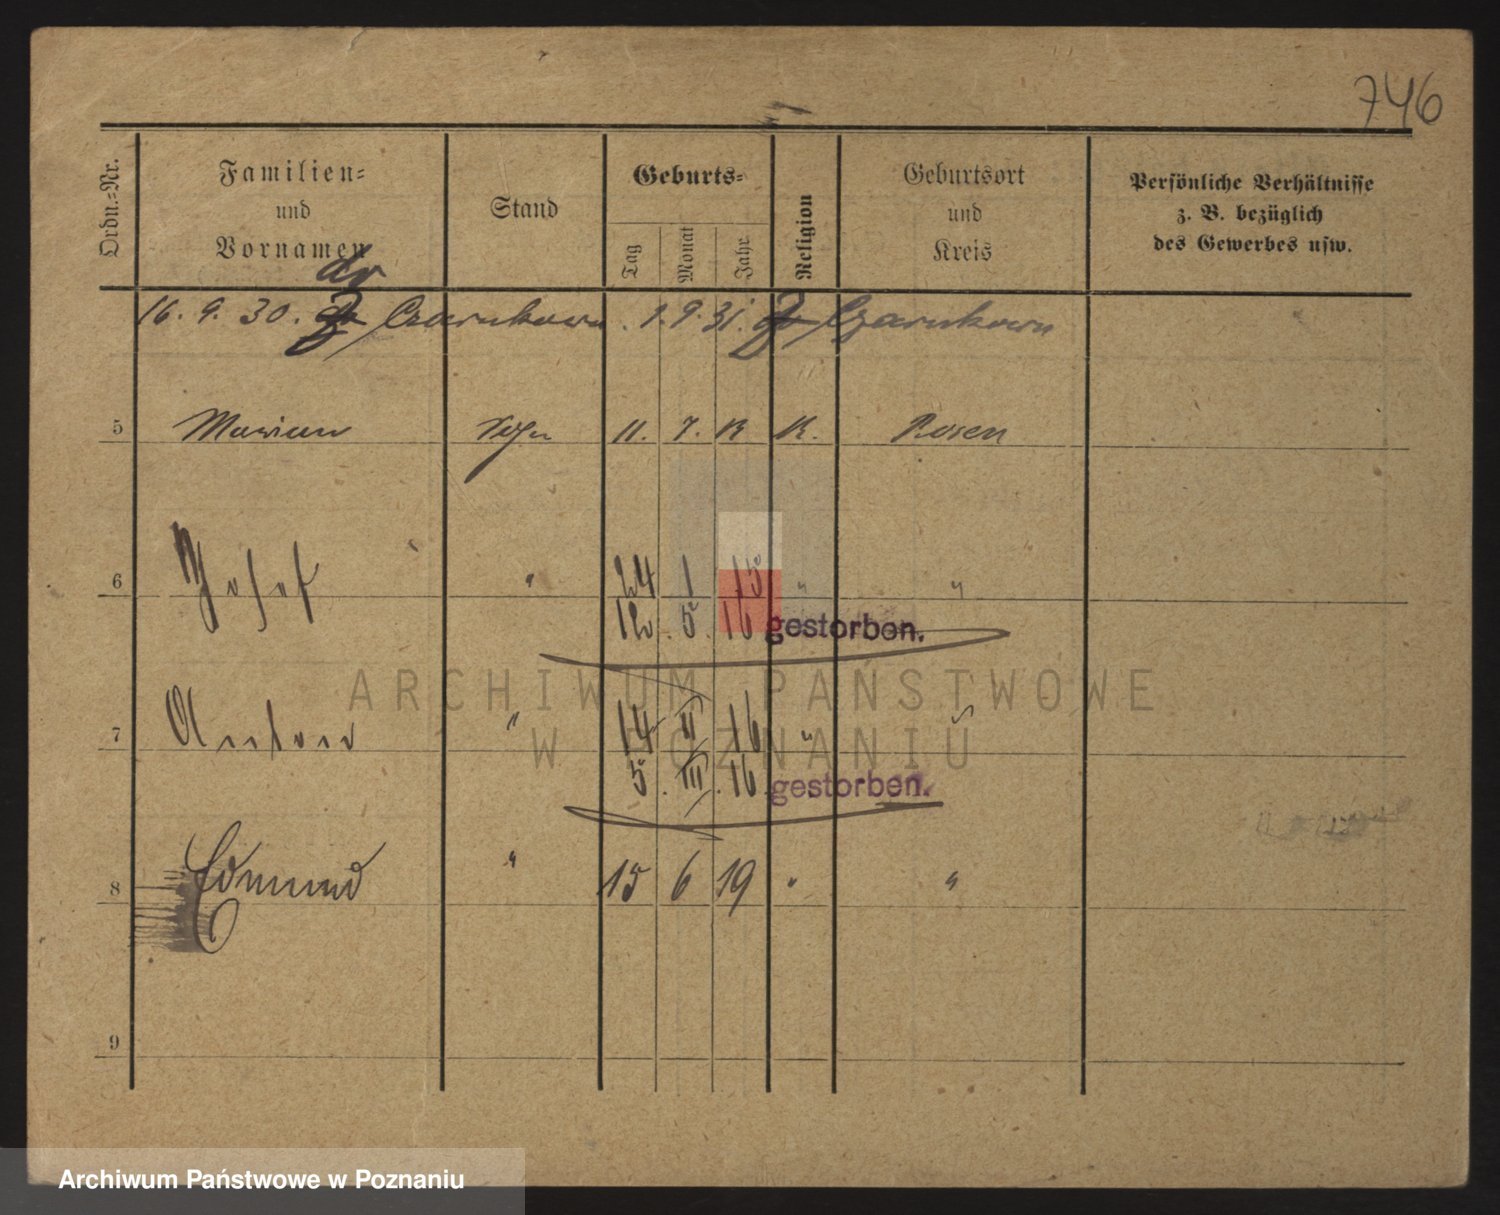 746
Ordn.=Nr.
Familien=
und
Vornamen
Stand
Geburts=
Tag
Monat
Jahr
Religion
Geburtsort
und
Kreis
Persönliche Verhältnisse
z. B. bezüglich
des Gewerbes usw.
do
16. 9. 30. Czarnkowa 1. 9. 31. Czarnkowa
5 Marian Sohn 11. 7. 13 K. Posen
6 Josef " 24 1 15 " "
12. 5. 16 gestorben.
7 Anton " 14 II 16 " "
5. III. 16 gestorben.
8 Edmund " 15 6 19 " "
9
ARCHIWUM PAŃSTWOWE
W POZNANIU
Archiwum Państwowe w Poznaniu